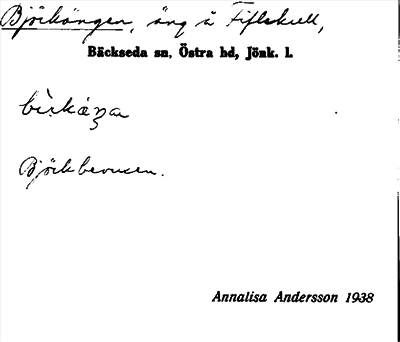 Björkängen, äng å Fiflekull,
Bäckseda sn, Östra hd, Jönk. l.
Björkbevuxen.
Annalisa Andersson 1938